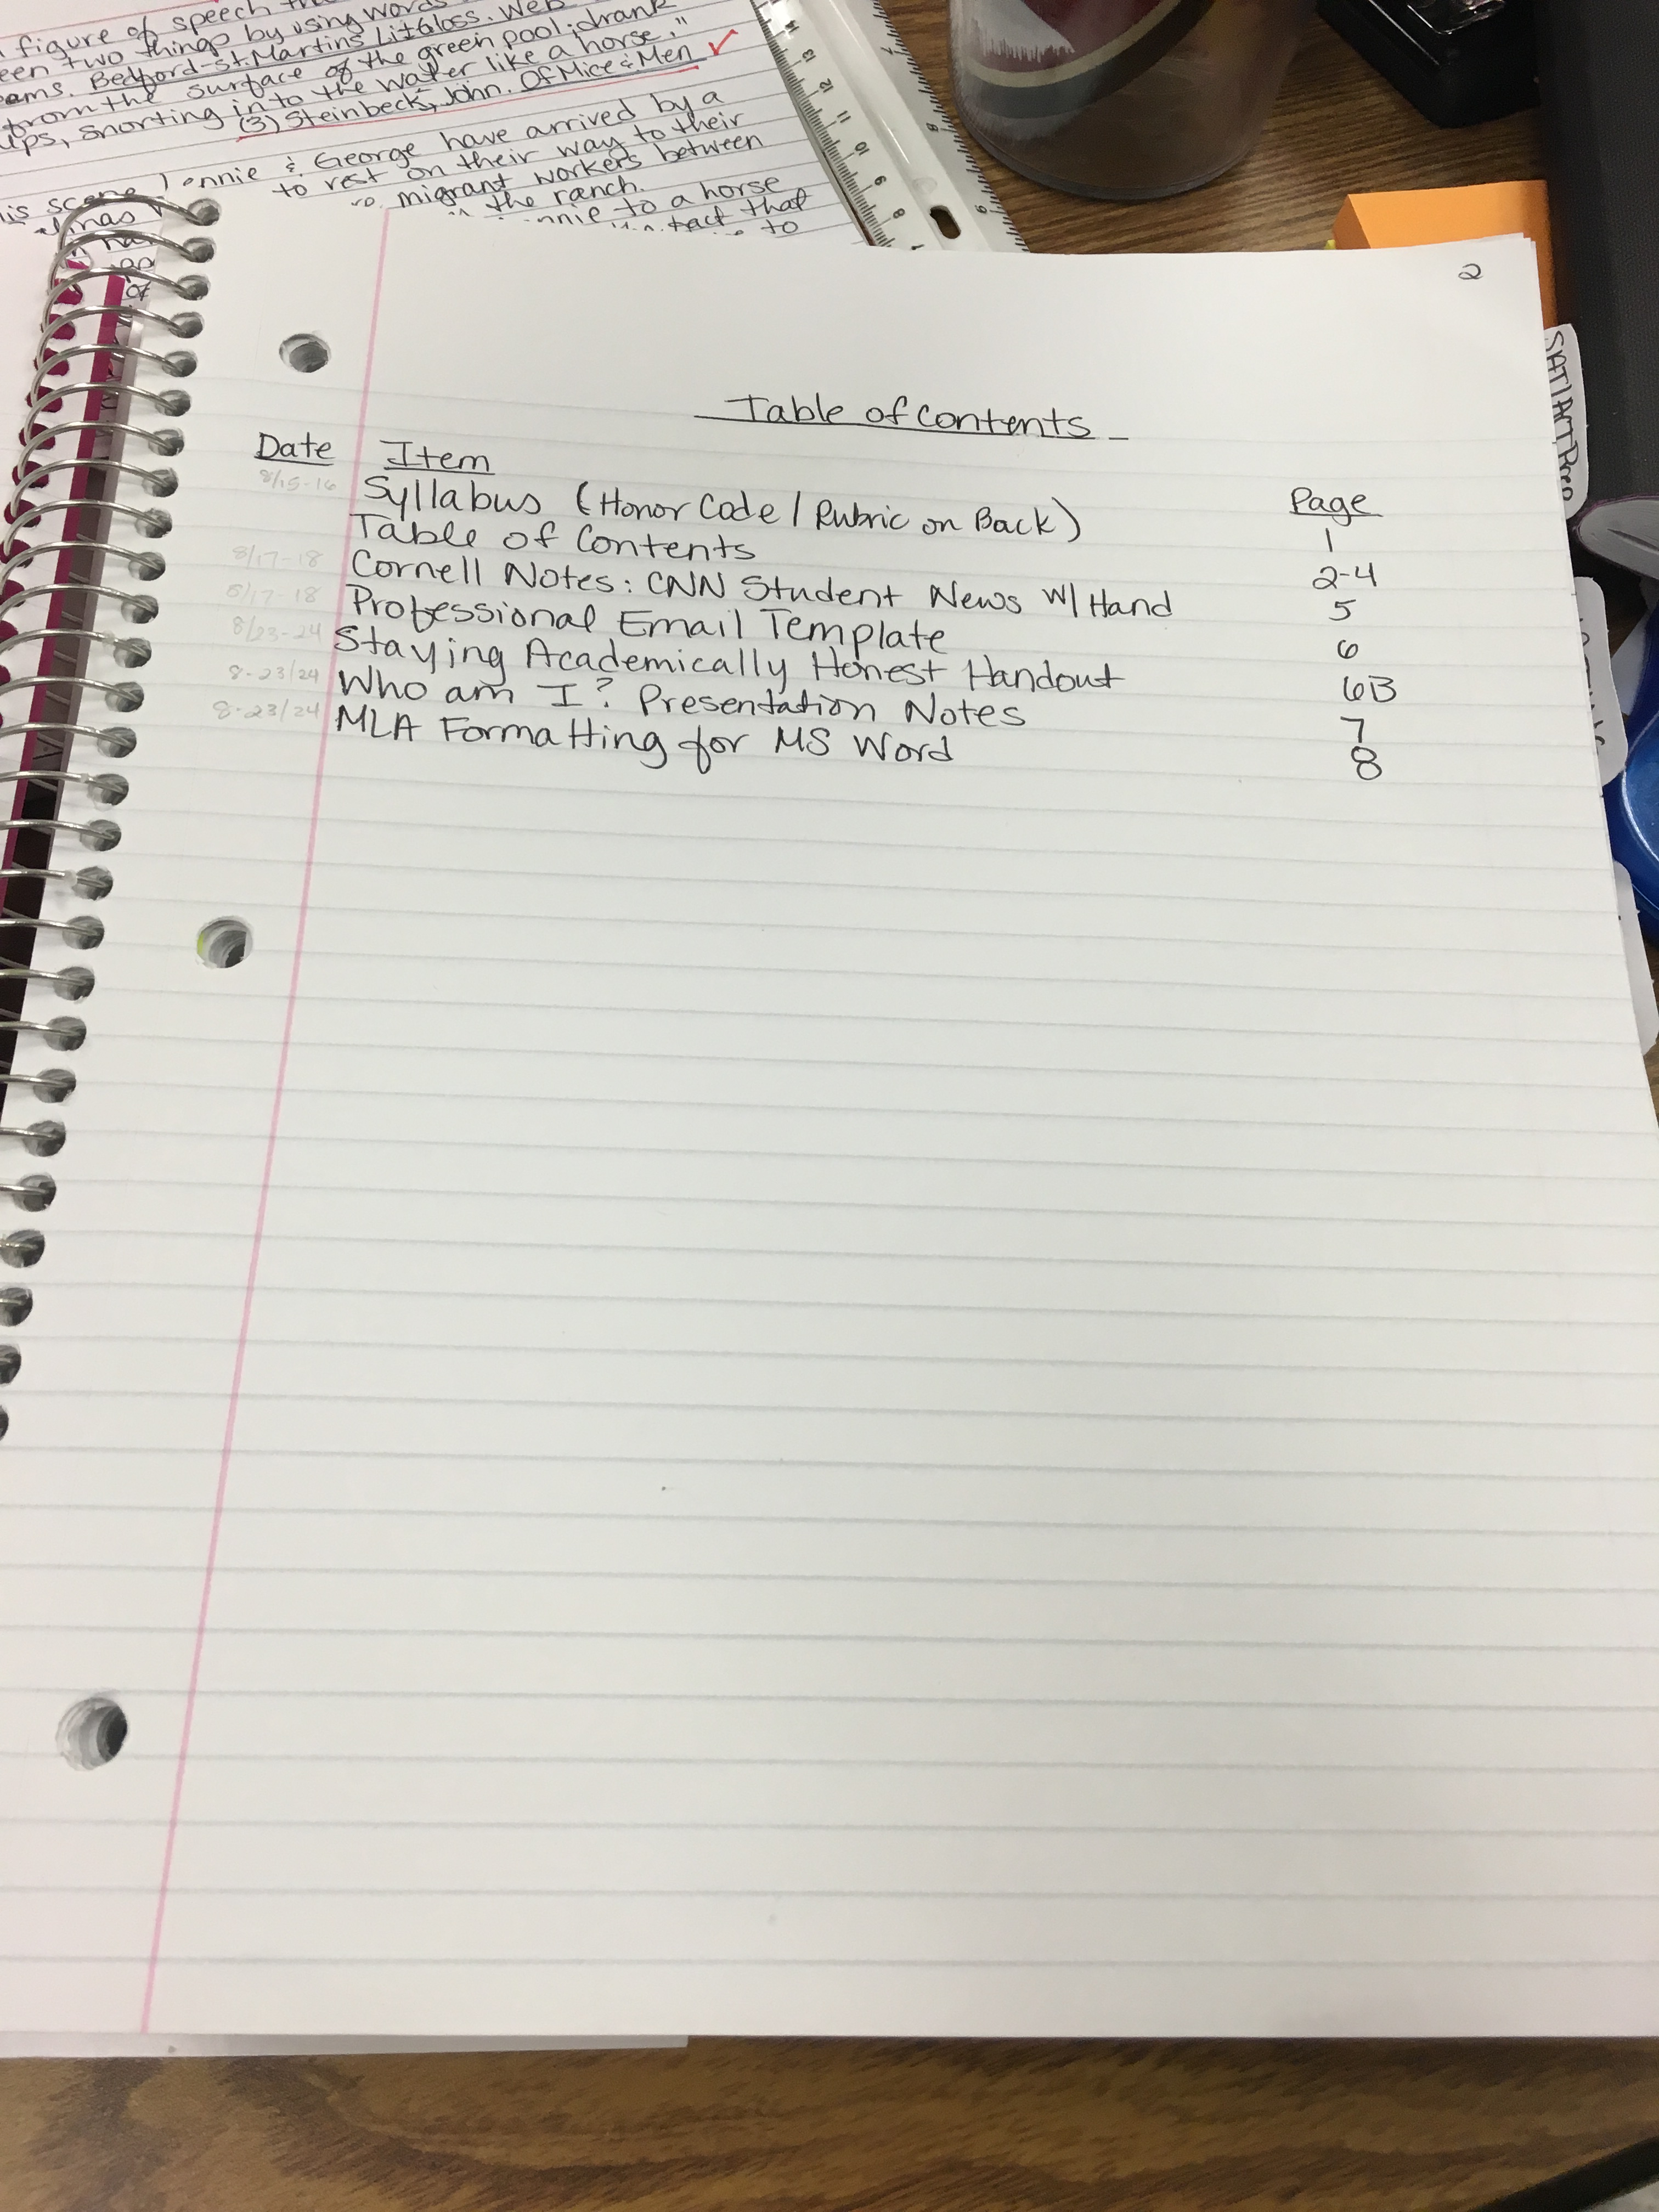 figure of speech
een two things by using words
eams. Bedford-St. Martin's LitGloss. Web
from the surface of the green pool; drank
snorting into the water like a horse."
(3) Steinbeck, John. Of Mice & Men ✓
his scene, & George have arrived by a
to rest on their way to their
migrant workers between
the ranch.
nnie to a horse
that
to
14 13 12 11 10 9 8
2
SAT/ACT Prep
Table of Contents
Date Item Page
8/15-16 Syllabus (Honor Code / Rubric on Back) 1
Table of Contents 2-4
8/17-18 Cornell Notes: CNN Student News w/ Hand 5
8/17-18 Professional Email Template 6
8/23-24 Staying Academically Honest Handout 6B
8-23/24 Who am I? Presentation Notes 7
8-23/24 MLA Formatting for MS Word 8